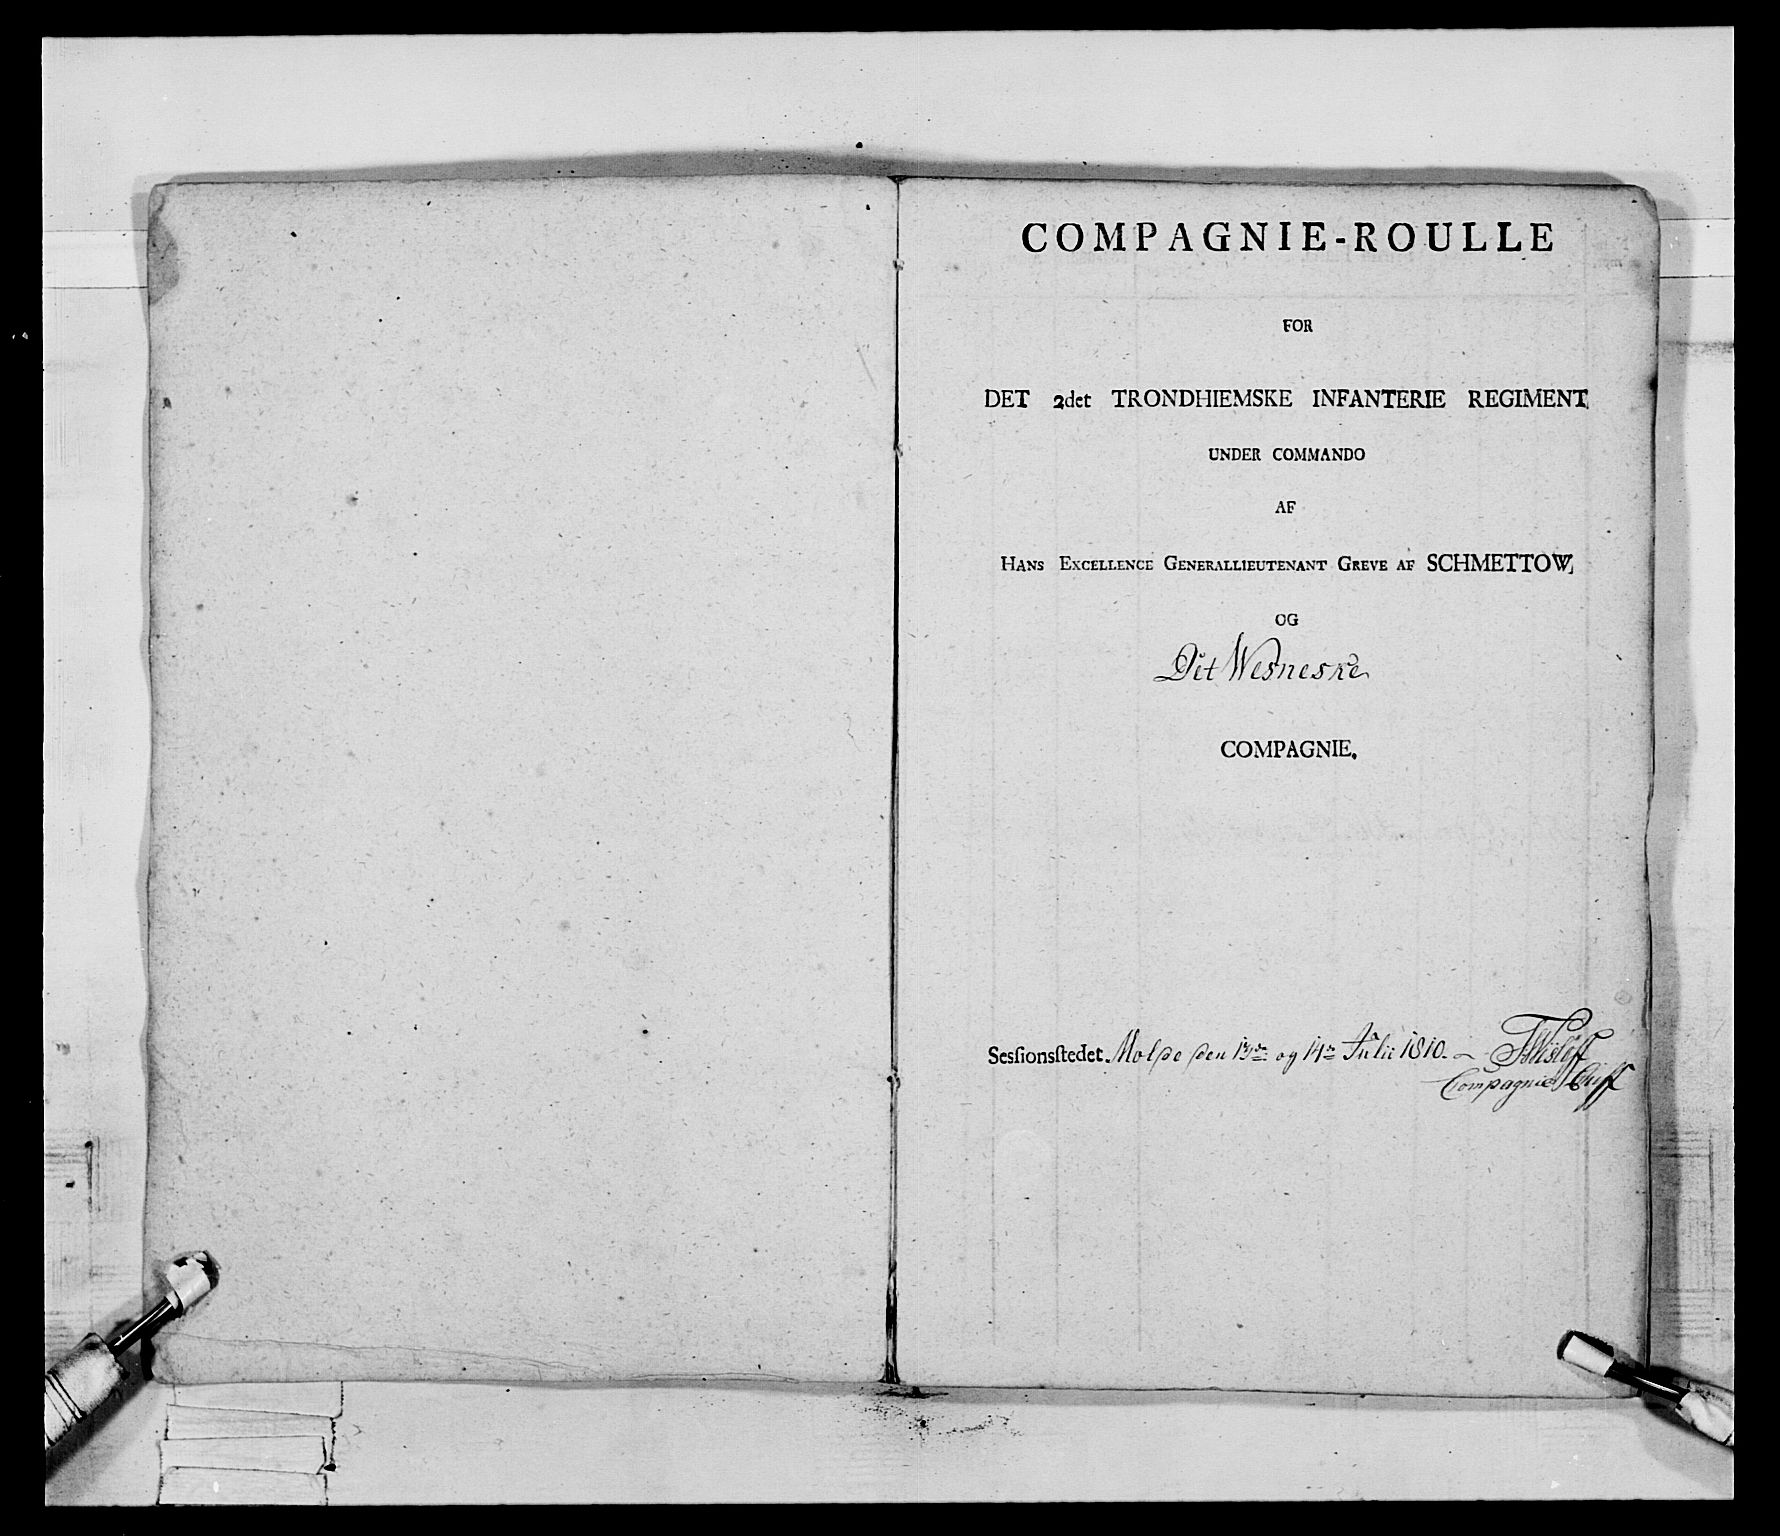 COMPAGNIE-ROULLE
FOR
DET 2det TRONDHIEMSKE INFANTERIE REGIMENT
UNDER COMMANDO
AF
HANS EXCELLENCE GENERALLIEUTENANT GREVE AF SCHMETTOW,
OG
Det Wesneske
COMPAGNIE.
Sesſionsſtedet Molde den 13de og 14de Julii 1810.
Compagnie Chef